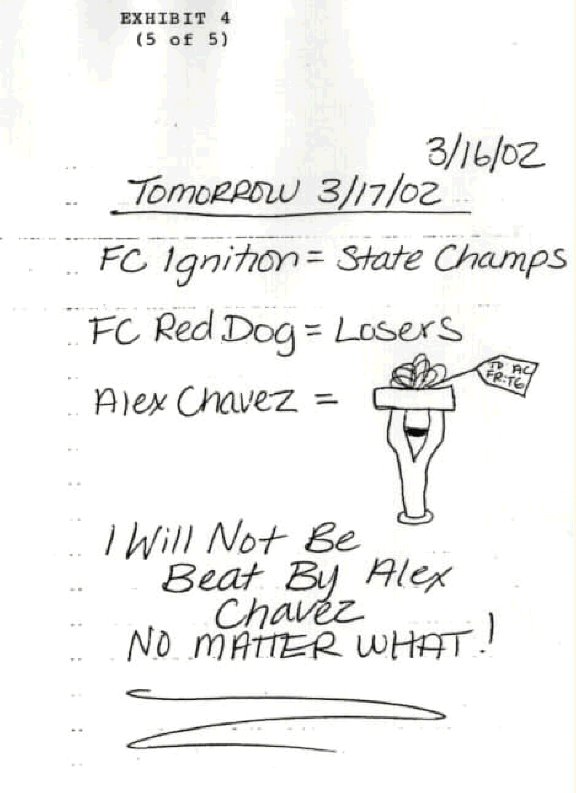 EXHIBIT 4
(5 of 5)
3/16/02
TOMORROW 3/17/02
FC Ignition = State Champs
FC Red Dog = Losers
TO AC
FR: TG
Alex Chavez =
I Will Not Be
Beat By Alex
Chavez
NO MATTER WHAT!